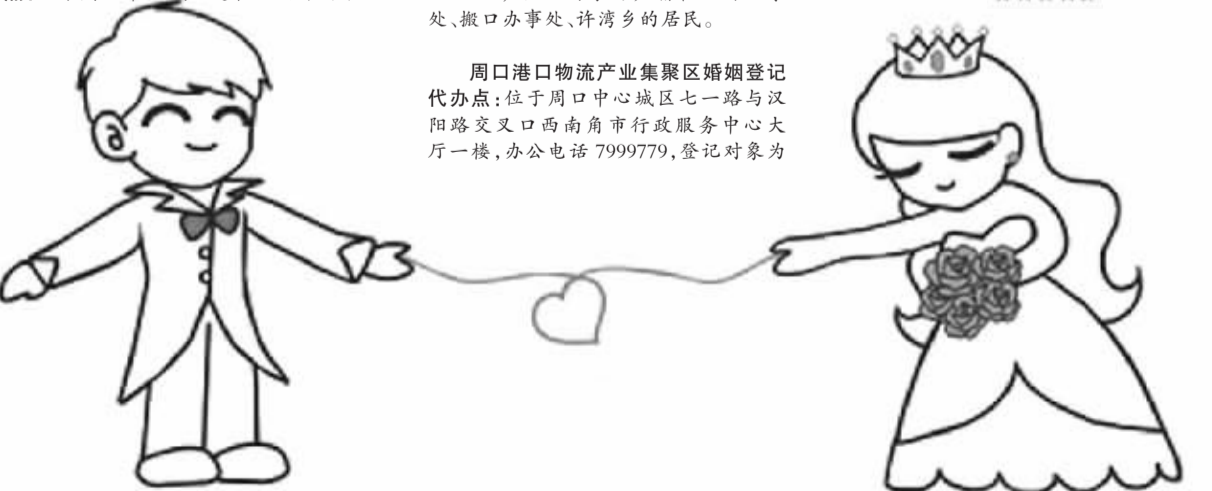 处、搬口办事处、许湾乡的居民。
周口港口物流产业集聚区婚姻登记
代办点：位于周口中心城区七一路与汉
阳路交叉口西南角市行政服务中心大
厅一楼，办公电话 7999779，登记对象为